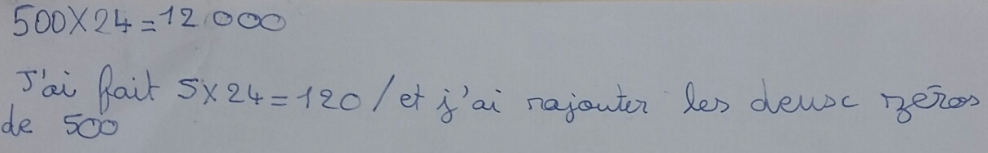 500X24=12 000
J'ai fait 5X24=120/et j'ai rajouter les deux zéros
de 500